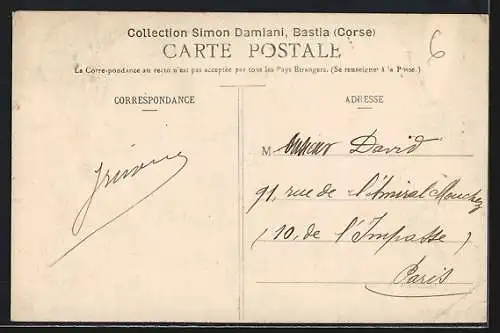 Collection Simon Damiani, Bastia (Corse)
CARTE POSTALE
6
La Correspondance au recto n'est pas acceptée par tous les Pays Étrangers. (Se renseigner à la Poste.)
CORRESPONDANCE
ADRESSE
M David
91, rue de l'Amiral Mouchez
(10, de l'Impasse)
Paris